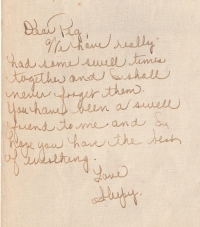 Dear Peg,
We have really
had some swell times
together and I shall
never forget them.
You have been a swell
friend to me and I
hope you have the best
of everything.
Love